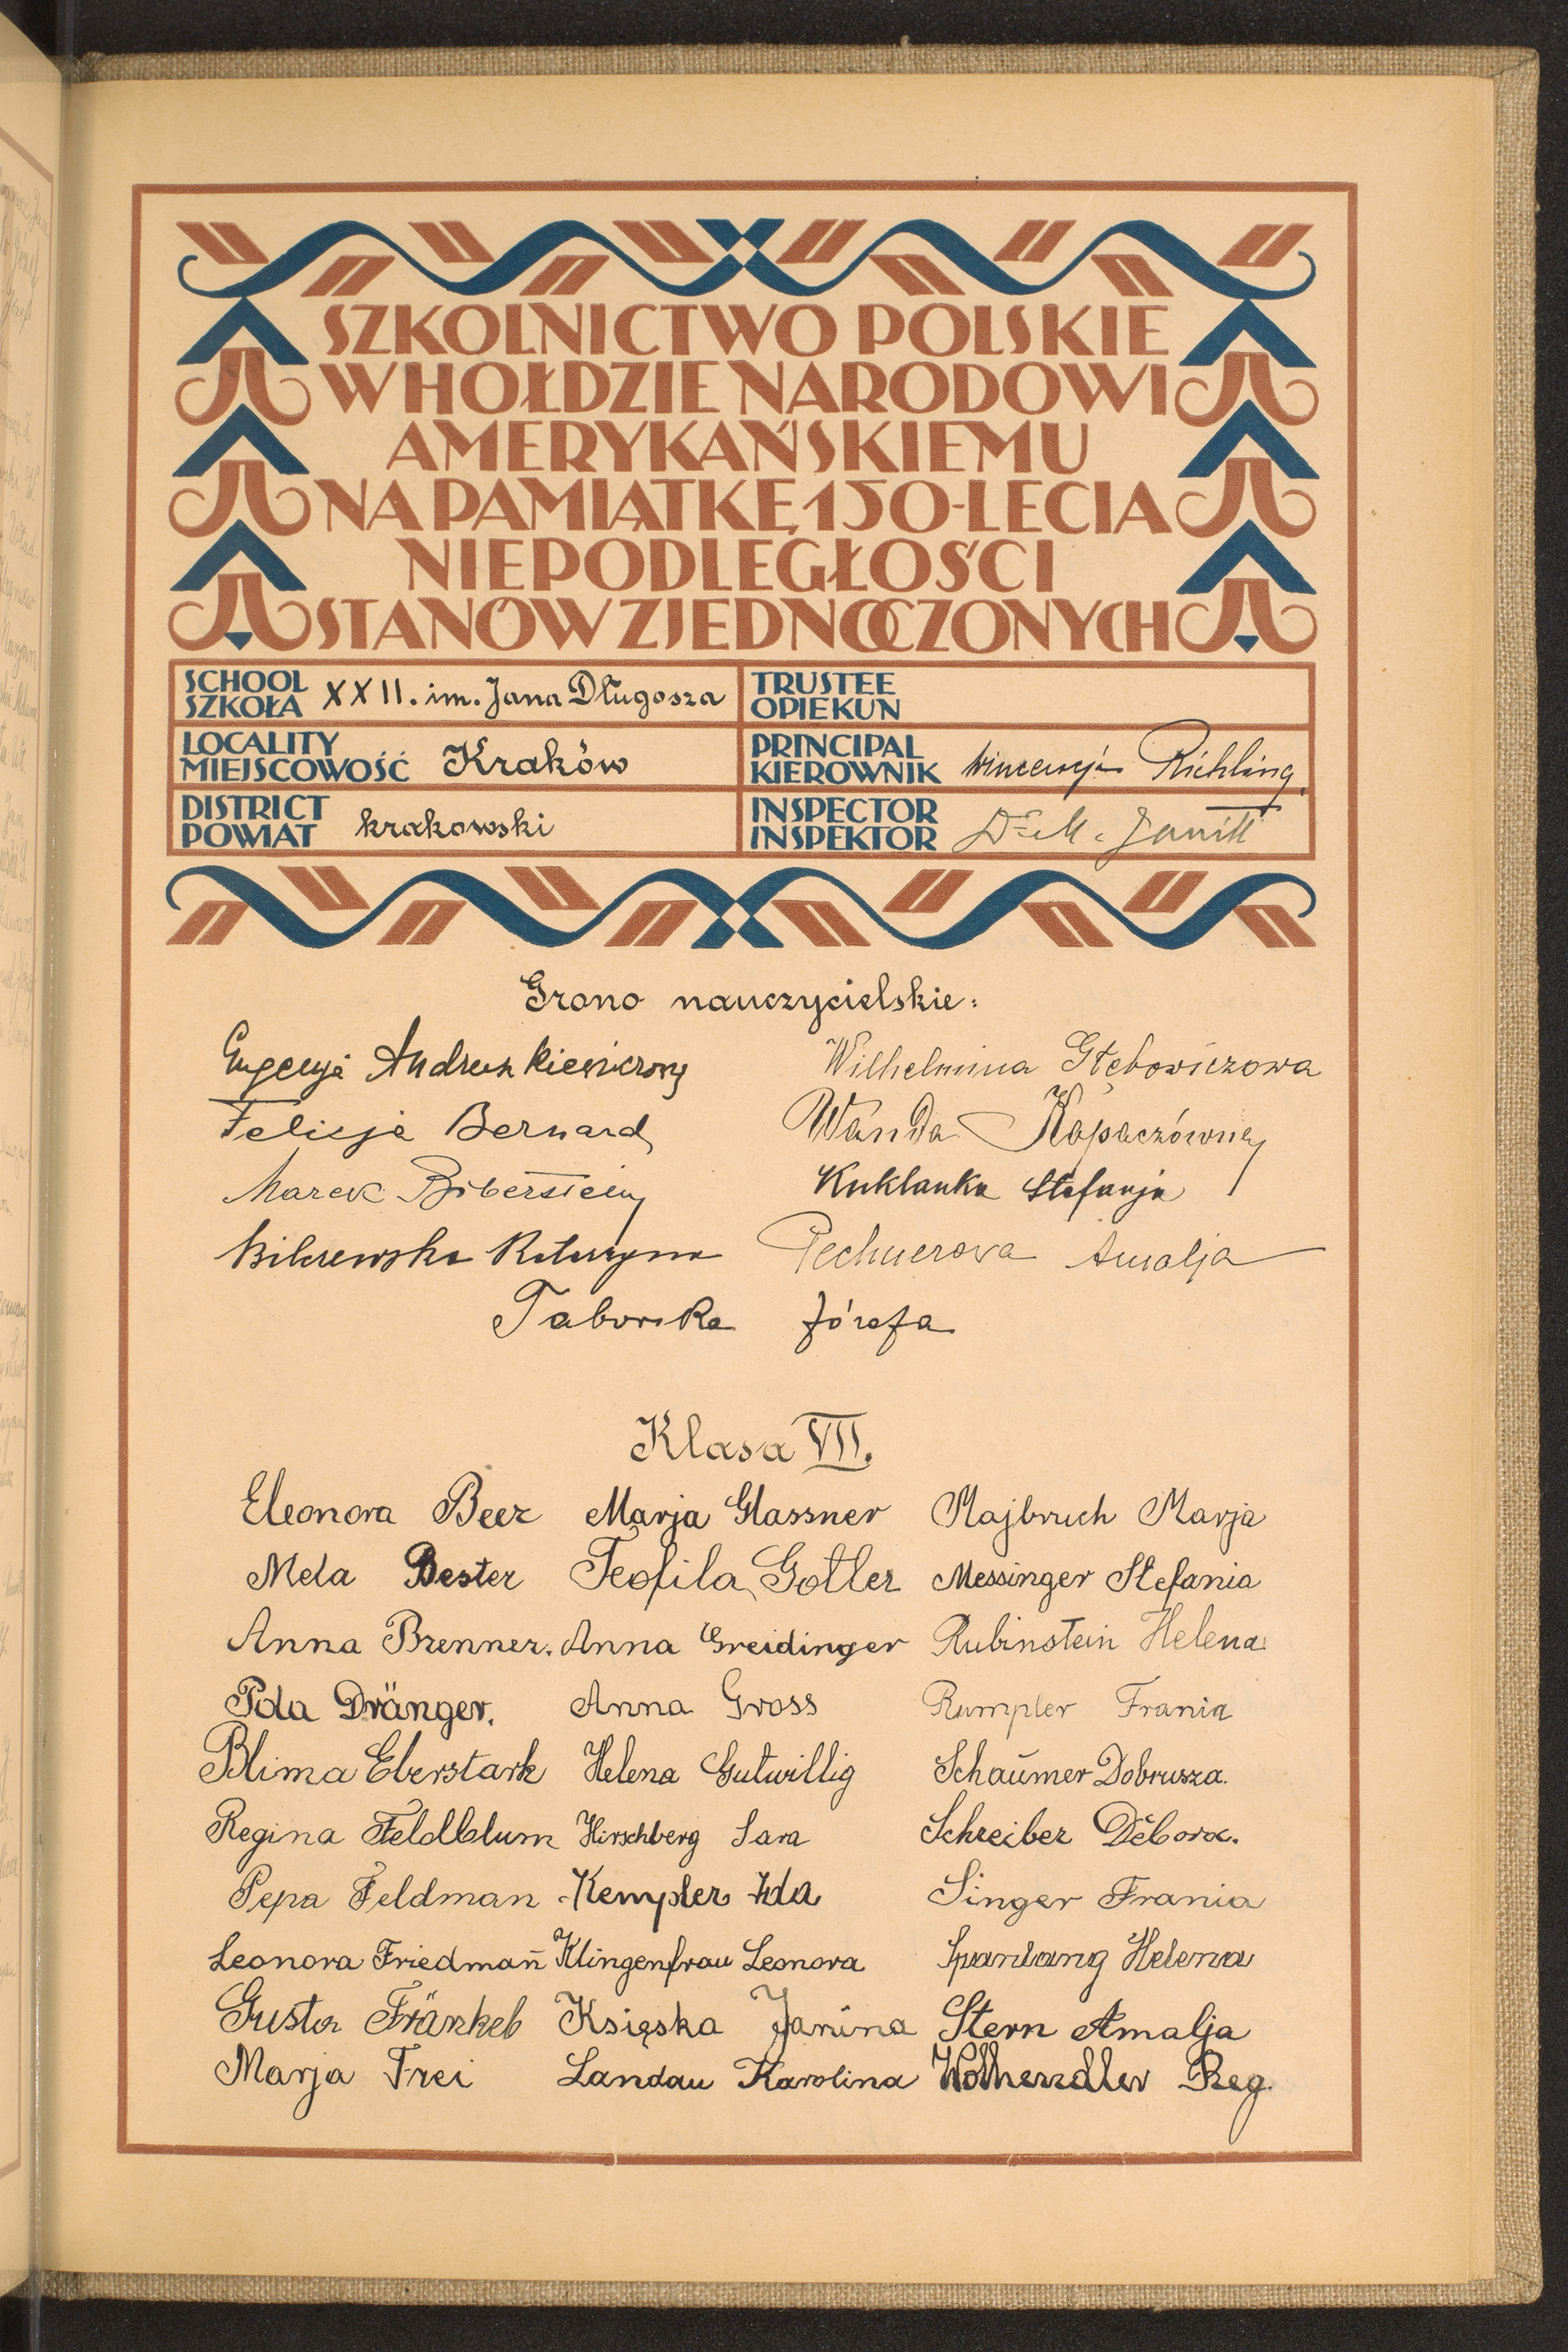 SZKOLNICTWO POLSKIE
W HOŁDZIE NARODOWI
AMERYKAŃSKIEMU
NA PAMIĄTKĘ 150-LECIA
NIEPODLEGŁOŚCI
STANÓW ZJEDNOCZONYCH
SCHOOL
SZKOŁA XXII. im. Jana Długosza
TRUSTEE
OPIEKUN
LOCALITY
MIEJSCOWOŚĆ Kraków
PRINCIPAL
KIEROWNIK Wincenty Richling
DISTRICT
POWIAT krakowski
INSPECTOR
INSPEKTOR Dr M. Janik
Grono nauczycielskie:
Eugenja
Wilhelmina Głębowiczowa
Felicja Bernard
Wanda Kapaczówna
Marek Biberstein
Kuklanka Stefanja
Bilczewska Katarzyna
Pechnerowa Amalja
Taborska Józefa
Klasa VII.
Eleonora Beer Marja Glassner Majbruch Marja
Mela Bester Teofila Gotler Messinger Stefania
Anna Brenner. Anna Greidinger Rubinstein Helena
Ida Dränger. Anna Gross Rumpler Frania
Blima Eberstark Helena Gutwillig Schaumer Dobrusza.
Regina Feldblum Hirschberg Sara Schreiber Debora.
Pepa Feldman Kempler Ida Singer Frania
Leonora Friedman Klingenfrau Leonora Spanlang Helena
Gusta Fränkel Księska Janina Stern Amalja
Marja Frei Landau Karolina Reg.